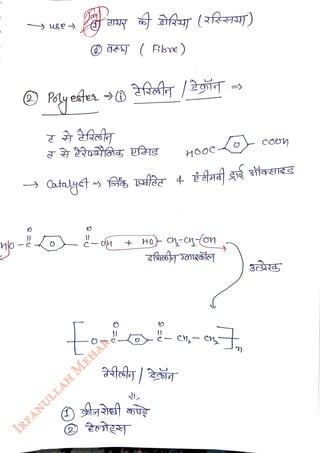 → use → ① टायर की डोरिया (रस्सिया)
② वस्त्र (Fibre)
② Polyester → ① टेरिलीन / डेक्रॉन ⇒
ट से टेरिलीन
ट से टेरेफ्थैलिक एसिड
HOOC COOH
→ Catalyst ⇒ जिंक एसीटेट + एंटीमनी ट्राई ऑक्साइड
O O
HO - C - O - C - OH + HO - CH₂ - CH₂ - OH
इथिलीन ग्लाइकॉल
उत्प्रेरक
O O
[ O - C - O - C - CH₂ - CH₂ ]n
टेरीलीन / डेक्रॉन
① क्रीजरोधी कपड़े
② हेल्मेट्स
IRFANULLAH MEHAR